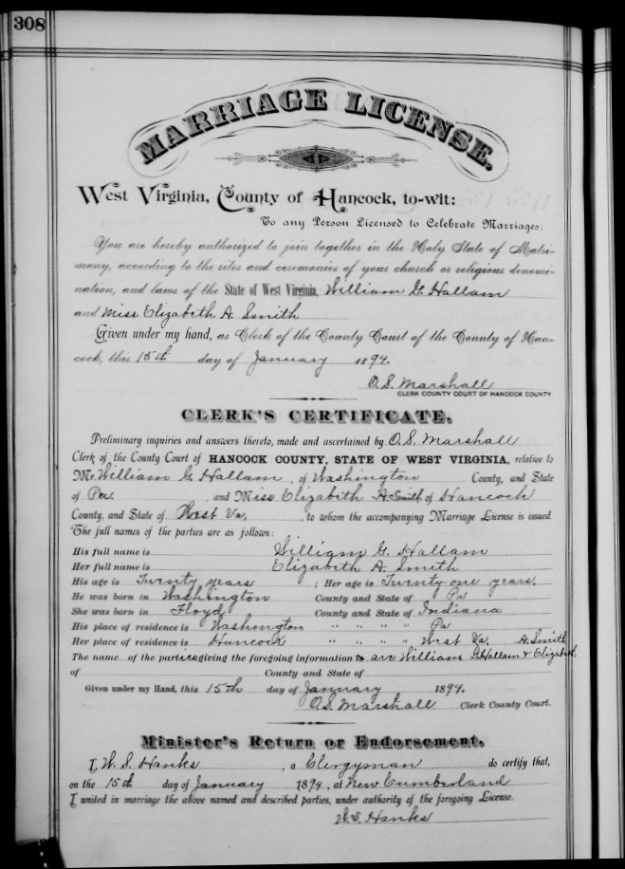 308
MARRIAGE LICENSE.
West Virginia, County of Hancock, to-wit:
To any Person Licensed to Celebrate Marriages:
You are hereby authorized to join together in the Holy State of Matri-
mony, according to the rites and ceremonies of your church or religious denomi-
nation, and laws of the State of West Virginia, William G. Hallam
and Miss Elizabeth A. Smith
Given under my hand, as Clerk of the County Court of the County of Han-
cock, this 15th day of January 1894.
O.S. Marshall
CLERK COUNTY COURT OF HANCOCK COUNTY
CLERK'S CERTIFICATE.
Preliminary inquiries and answers thereto, made and ascertained by O.S. Marshall
Clerk of the County Court of HANCOCK COUNTY, STATE OF WEST VIRGINIA, relative to
Mr. William G. Hallam, of Washington County, and State
of Pa. , and Miss Elizabeth A. Smith of Hancock
County, and State of West Va, , to whom the accompanying Marriage License is issued.
The full names of the parties are as follows:
His full name is William G. Hallam
Her full name is Elizabeth A. Smith
His age is Twenty years ; Her age is Twenty-one years.
He was born in Washington County and State of Pa
She was born in Floyd County and State of Indiana
His place of residence is Washington " " " " Pa
Her place of residence is Hancock " " " " West Va. A. Smith
The name of the parties giving the foregoing information is are William G. Hallam & Elizabeth
of County and State of
Given under my Hand, this 15th day of January 1894.
O.S. Marshall Clerk County Court.
Minister's Return or Endorsement.
I, W. S. Hanks , a Clergyman do certify that,
on the 15th day of January 1894, at New Cumberland
I united in marriage the above named and described parties, under authority of the foregoing License.
W. S. Hanks